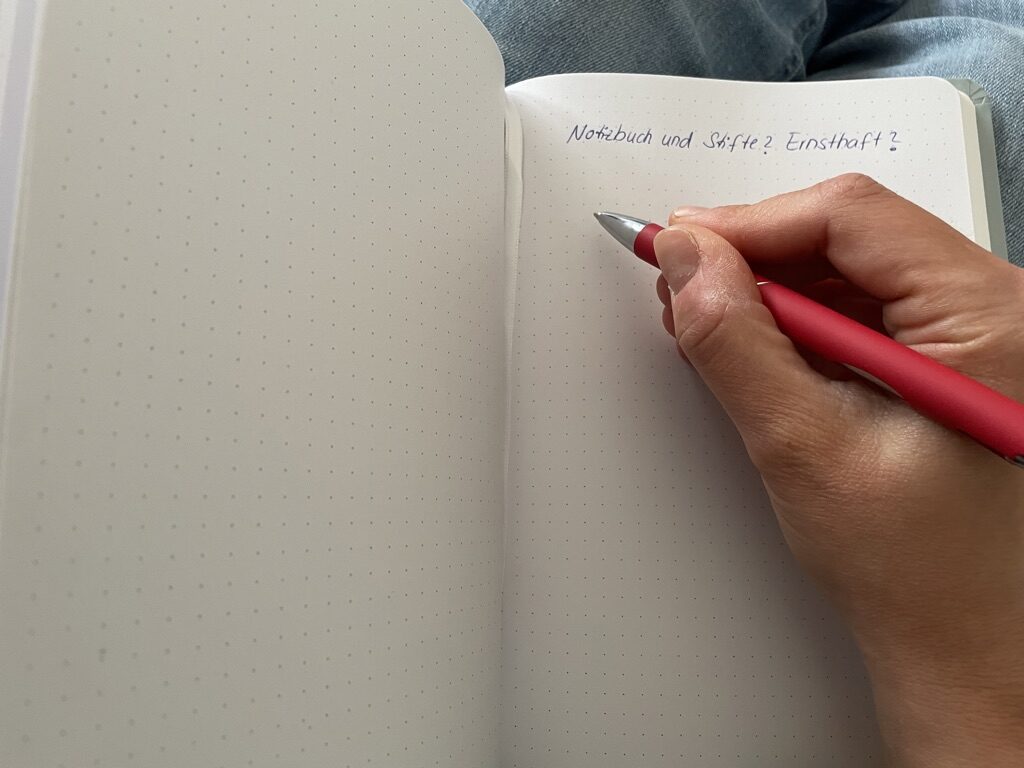 Notizbuch und Stifte? Ernsthaft?